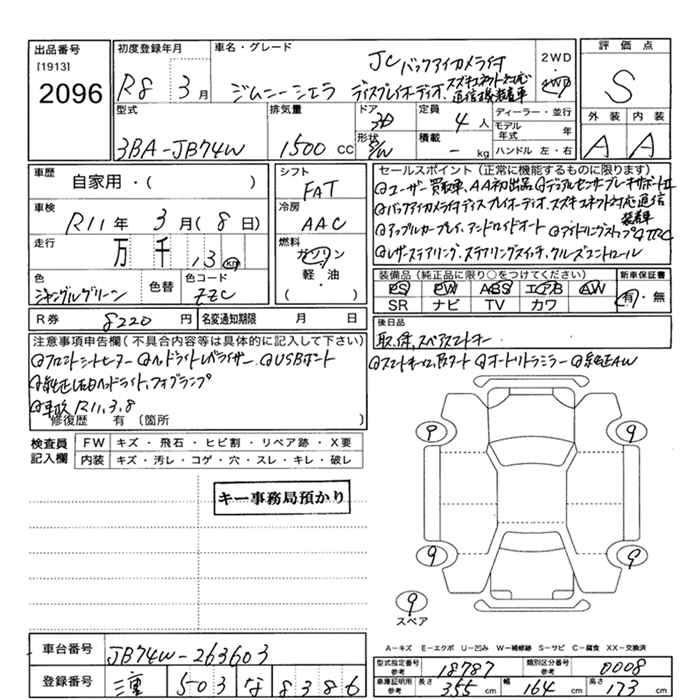 出品番号
[1913]
2096
初度登録年月
R8年3月
車名・グレード
JC バックアイカメラ付
ジムニーシエラ ディスプレイオーディオ、スズキコネクト対応
通信機装着車
2WD
・
4WD
評価点
S
外装 内装
A A
型式
3BA-JB74W
排気量
1500 CC
ドア
3D
形状
S/W
定員
4人
積載
- kg
ディーラー・並行
モデル年式 年
ハンドル 左・右
車歴 自家用・( )
車検 R11年 3月(8日)
走行 万 千 13 km
色
ジャングルグリーン
色替
色コード
ZZC
シフト
FAT
冷房
AAC
燃料
ガソリン
軽・油
( )
セールスポイント(正常に機能するものに限ります)
ユーザー買取車、AA初出品 デュアルセンサーブレーキサポートⅡ
バックアイカメラ付ディスプレイオーディオ、スズキコネクト対応通信
装着車
アップルカープレイ、アンドロイドオート アイドリングストップ TRC
レザーステアリング、ステアリングスイッチ、クルーズコントロール
装備品(純正品に限り○をつけてください) 新車保証書
PS PW ABS エアB AW
SR ナビ TV カワ
有・無
R券 8220円 名変通知期限 月 日
後日品
取、保、スペアスマートキー
スマートキー×2、Pスタート オートリトラミラー 純正AW
注意事項申告欄(不具合内容等は具体的に記入して下さい)
フロントシートヒーター ヘッドライトレベライザー、USBポート
純正LEDヘッドライト、フォグランプ
車検R11,3,8
修復歴 有(箇所 )
検査員記入欄
FW キズ・飛石・ヒビ割・リペア跡・X要
内装 キズ・汚レ・コゲ・穴・スレ・キレ・破レ
キー事務局預かり
9 9
9 9
9
スペア
A-キズ E-エクボ U-凹み W-補修跡 S-サビ C-腐食 XX-交換済
車台番号 JB74W-263603
登録番号 三重 503 な 8386
型式指定番号 参考 18787 類別区分番号 参考 0008
車庫証明用 参考 長さ 355 cm 幅 164 cm 高さ 173 cm